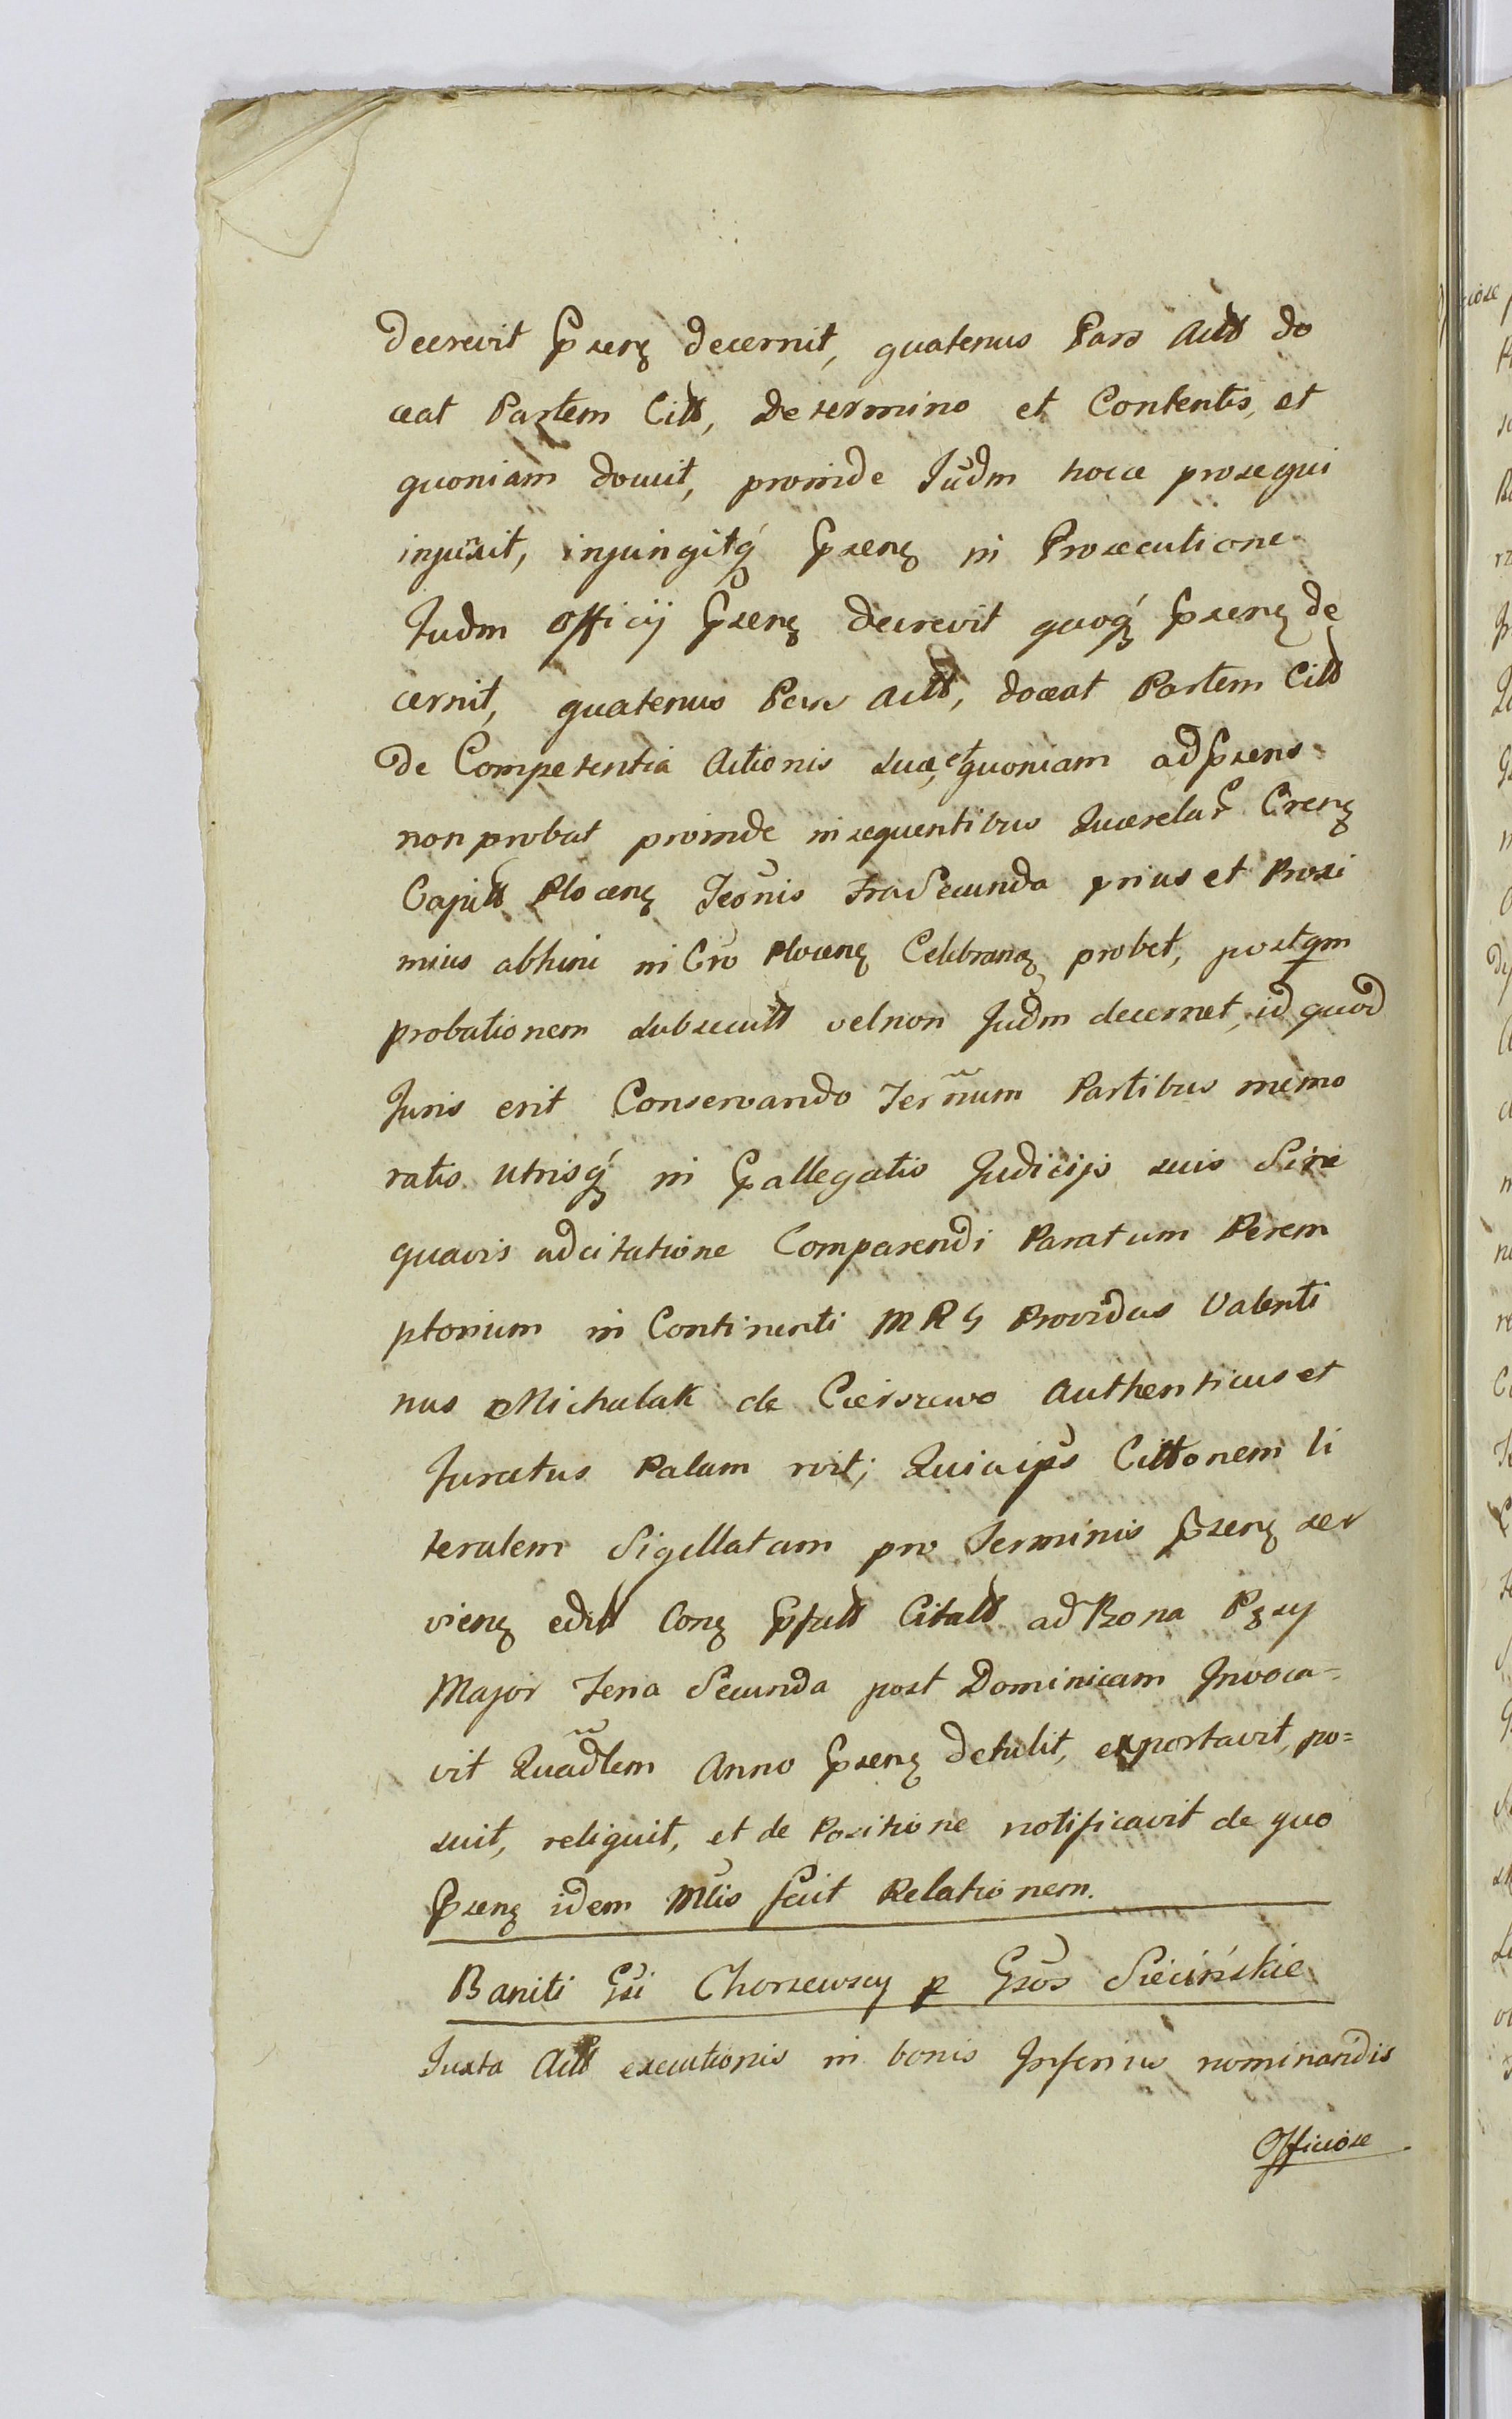 decrevit Psenz decernit, quatenus Pars Actt do
ceat Partem Citt, de termino et Contentis, et
quoniam docuit, proinde Judm hocce prosequi
injunxit, injungitq Psenz in Prosecutione
Judm Officij Psenz decrevit quoq Psenz de
cernit, quatenus Pars Actt, doceat Partem Citt
de Competentia Actionis suæ, et quoniam ad Psens
non probat proinde in sequentibus Querelar Crenz
Capitt Plocenz Teonis fra Secunda prius et Proxi
mius abhinc in Cro Plocenz Celebranz probet, postqm
probationem subsecutt vel non Judm decernet, id quod
Juris erit Conservando Termum Partibus memo
ratis utrisq in Pallegatis Judicijs suis Sine
quavis adcitatione Comparendi Paratum Perem
ptorium in Continenti MRS Providus Valenti
nus Michalak de Cierszewo Authenticus et
Juratus Palam rvit; Quia ips Cittonem li
teralem Sigillatam pro Terminis Psenz ser
vienz editt Conz Pfatt Citatt ad Bona Pzsy
Major feria Secunda post Dominicam Invoca=
vit Quadlem Anno Psenz detulit, exportavit, po=
suit, reliquit, et de Positione notificavit de quo
Psenz idem Mlis fecit Relationem.
Baniti Gsi Chorzewscy p Gsos Siecińskie
Juxta Actt executionis in bonis Inferius nominandis
Officiose